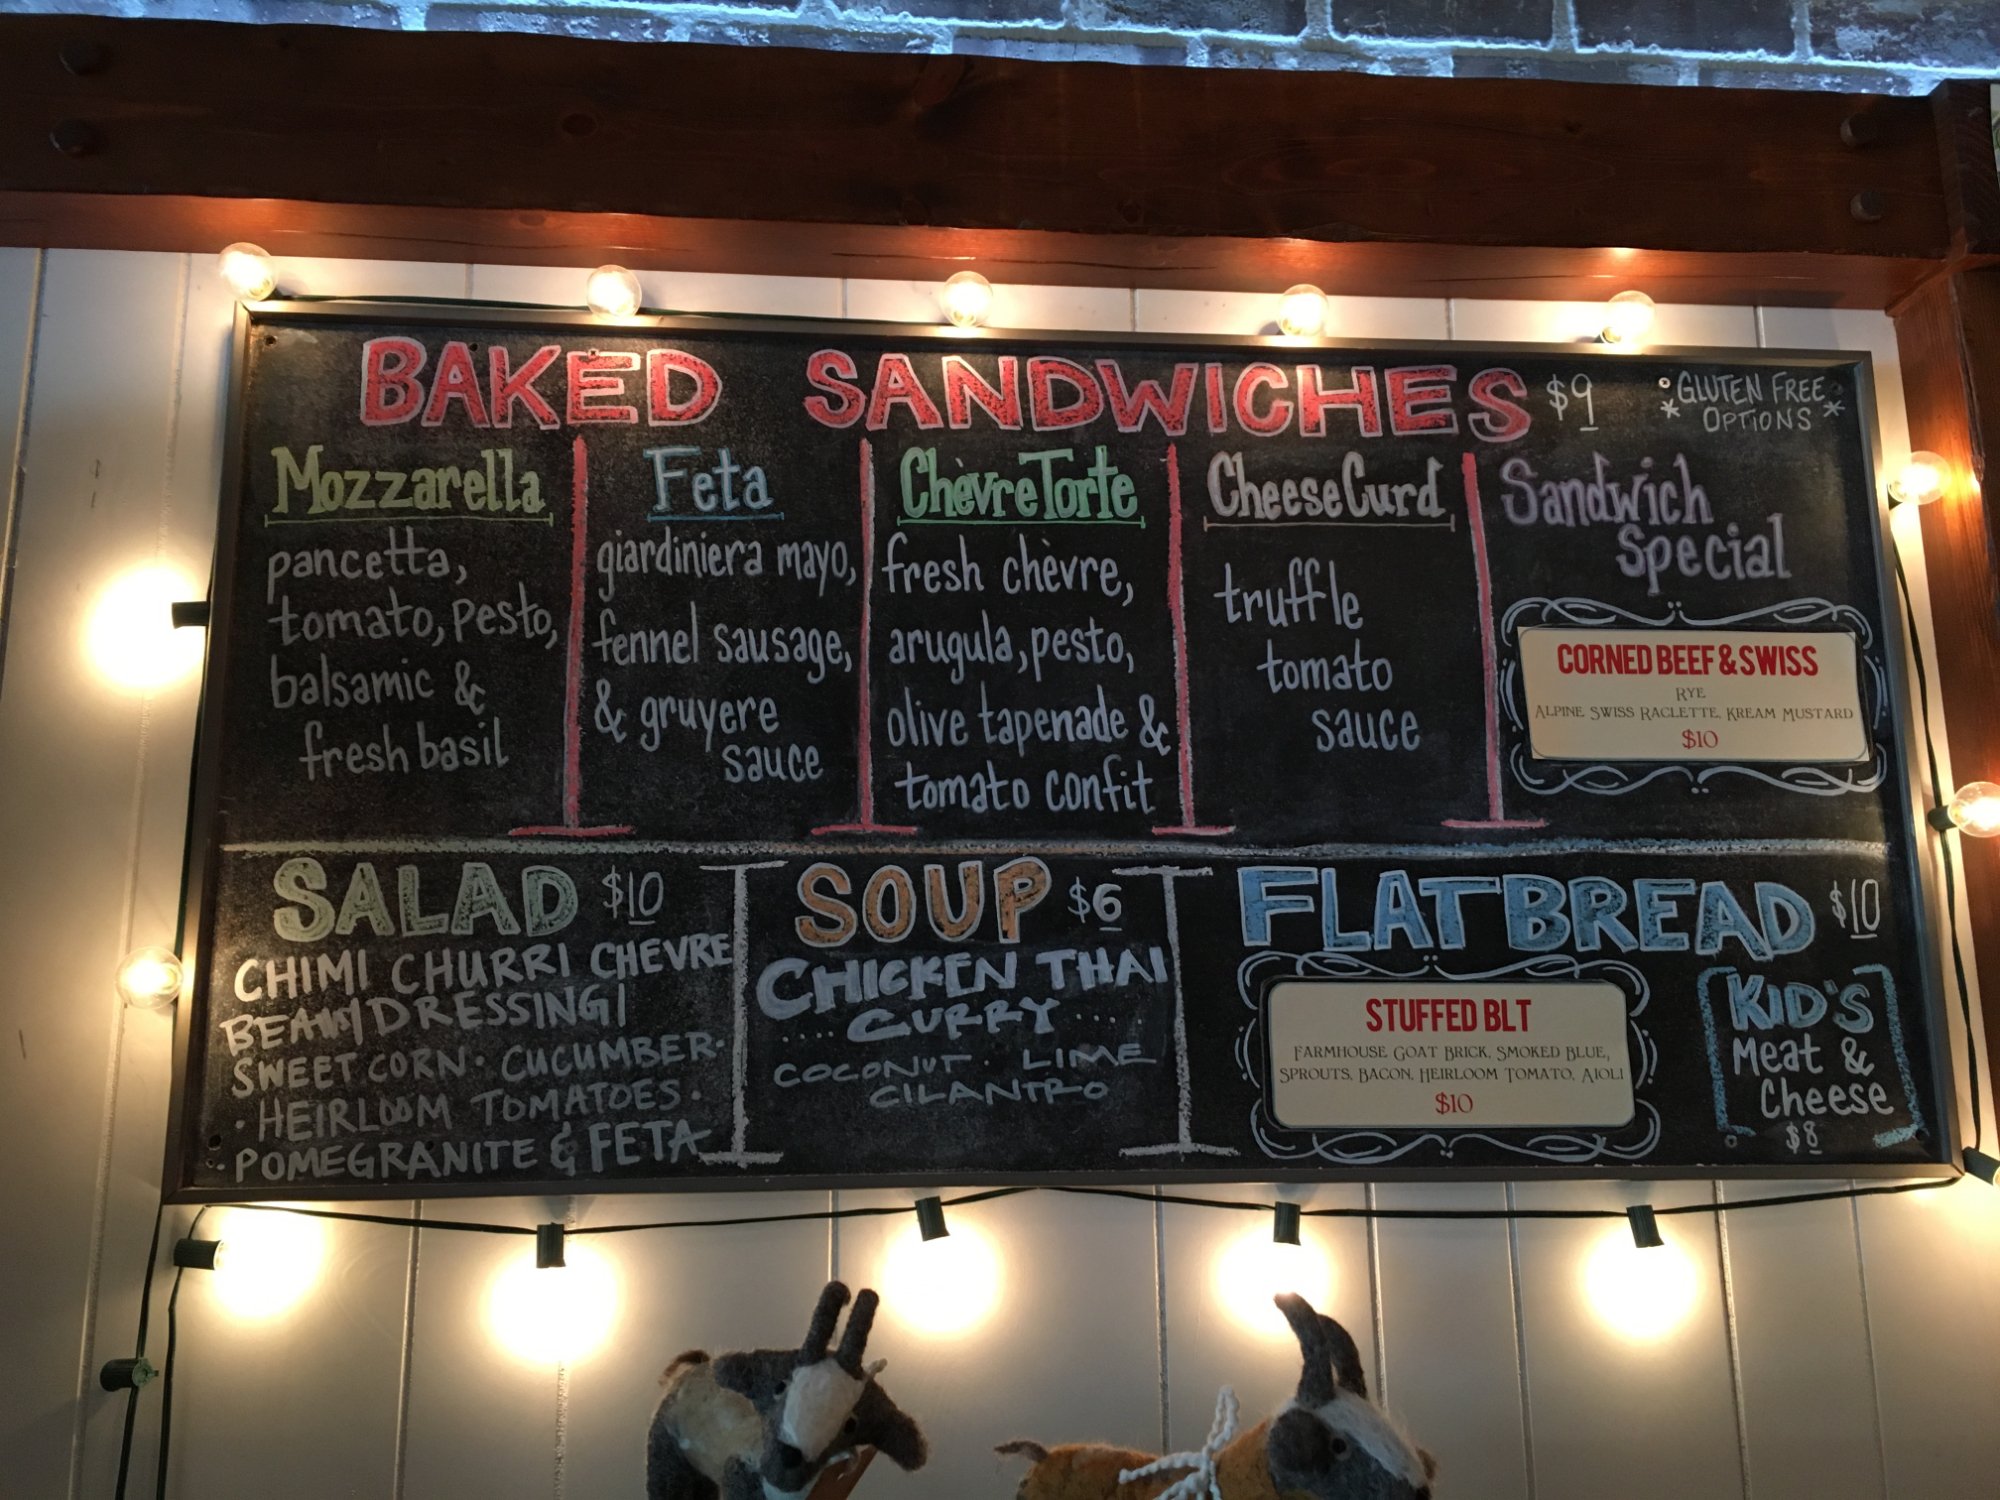 BAKED SANDWICHES $9
*GLUTEN FREE
OPTIONS*
Mozzarella
pancetta,
tomato, pesto,
balsamic &
fresh basil
Feta
giardiniera mayo,
fennel sausage,
& gruyere
sauce
Chèvre Torte
fresh chèvre,
arugula, pesto,
olive tapenade &
tomato confit
Cheese Curd
truffle
tomato
sauce
Sandwich
Special
CORNED BEEF & SWISS
RYE
ALPINE SWISS RACLETTE, KREAM MUSTARD
$10
SALAD $10
CHIMI CHURRI CHEVRE
DRESSING
SWEET CORN · CUCUMBER ·
· HEIRLOOM TOMATOES ·
· POMEGRANITE & FETA
SOUP $6
CHICKEN THAI
.... CURRY ....
COCONUT · LIME
CILANTRO
FLATBREAD $10
STUFFED BLT
FARMHOUSE GOAT BRICK, SMOKED BLUE,
SPROUTS, BACON, HEIRLOOM TOMATO, AIOLI
$10
KID'S
Meat &
Cheese
$8